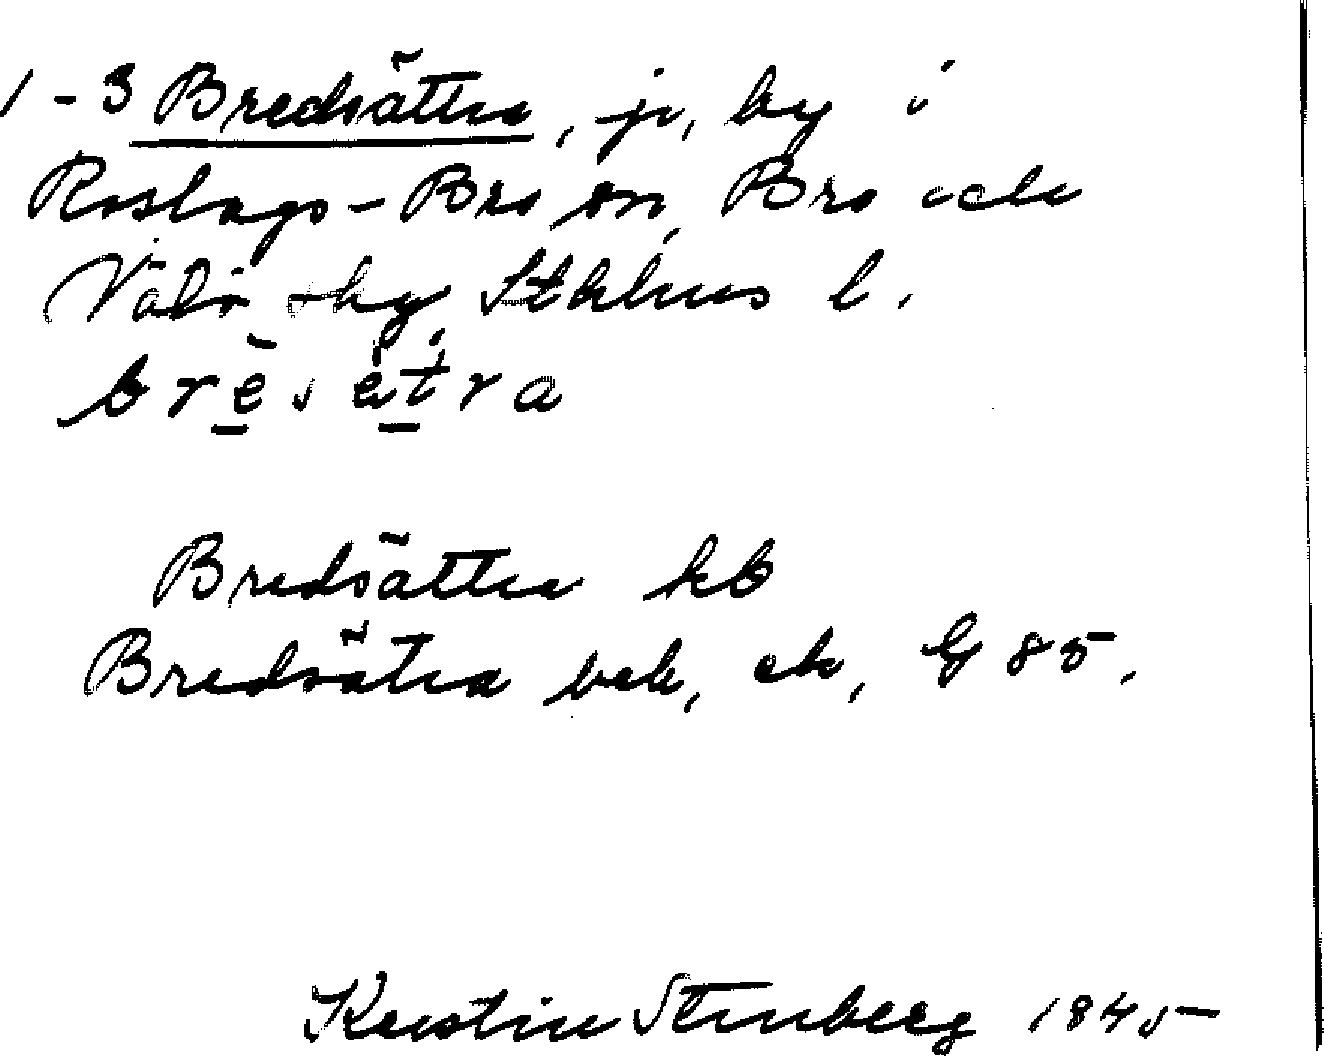 1-3 Bredsättra, jr, by i
Roslags-Bro sn, Bro och
Vätö skg, Sthlms l.
brèsä̀tra
Bredsättra kb
Bredsätra bek, ek, G 85.
Kerstin Stenberg 1845